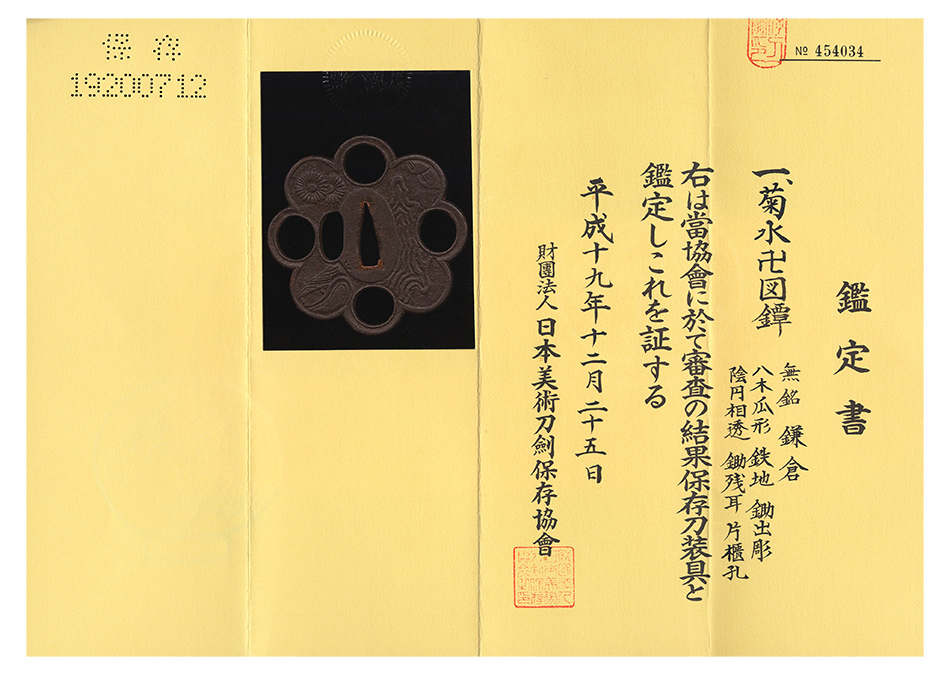 鑑定書
一、菊水卍図鐔
無銘 鎌倉
八木瓜形 鉄地 鋤出彫
陰円相透 鋤残耳 片櫃孔
右は當協會に於て審査の結果保存刀装具と
鑑定しこれを証する
平成十九年十二月二十五日
財團法人 日本美術刀劍保存協會
№ 454034
保存
19200712